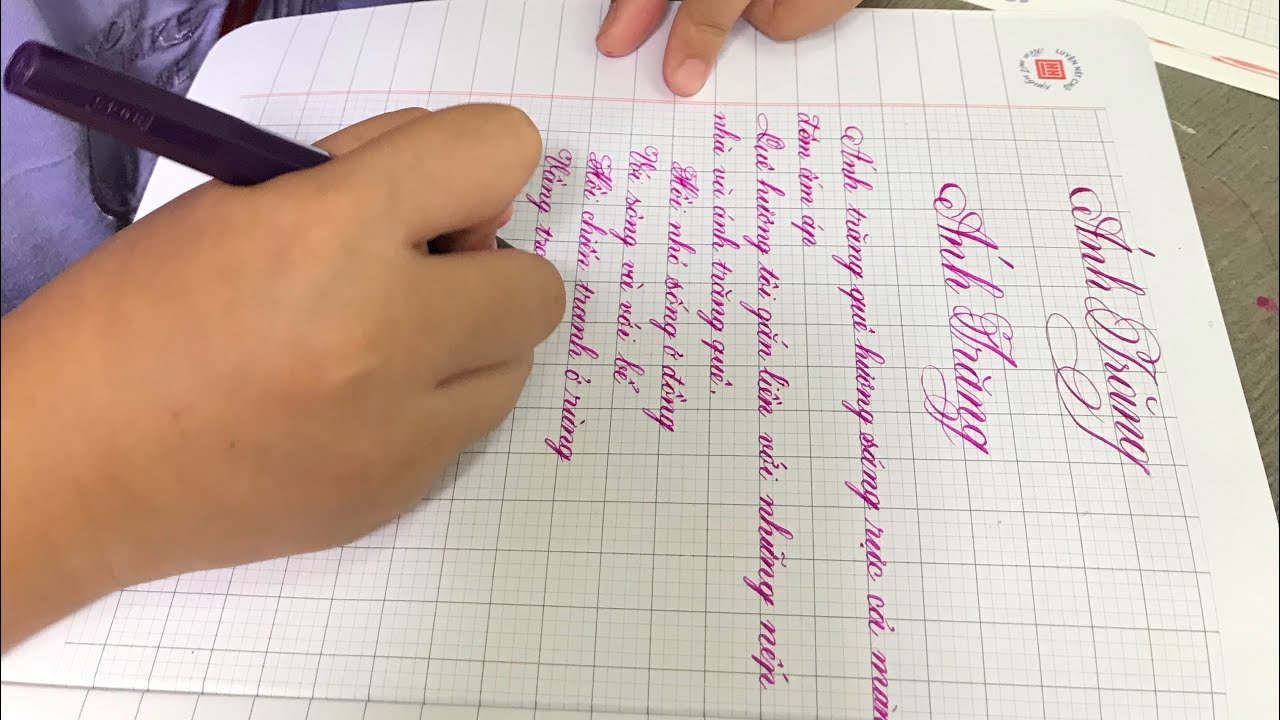 Ánh Trăng
Ánh Trăng
Ánh trăng quê hương sáng rực cả màn
đêm ấm áp
Quê hương tôi gắn liền với những nếp
nhà và ánh trăng quê.
Hồi nhỏ sống ở đồng
Với sông và với bể
Hồi chiến tranh ở rừng
Vầng
LUYỆN NÉT CHỮ